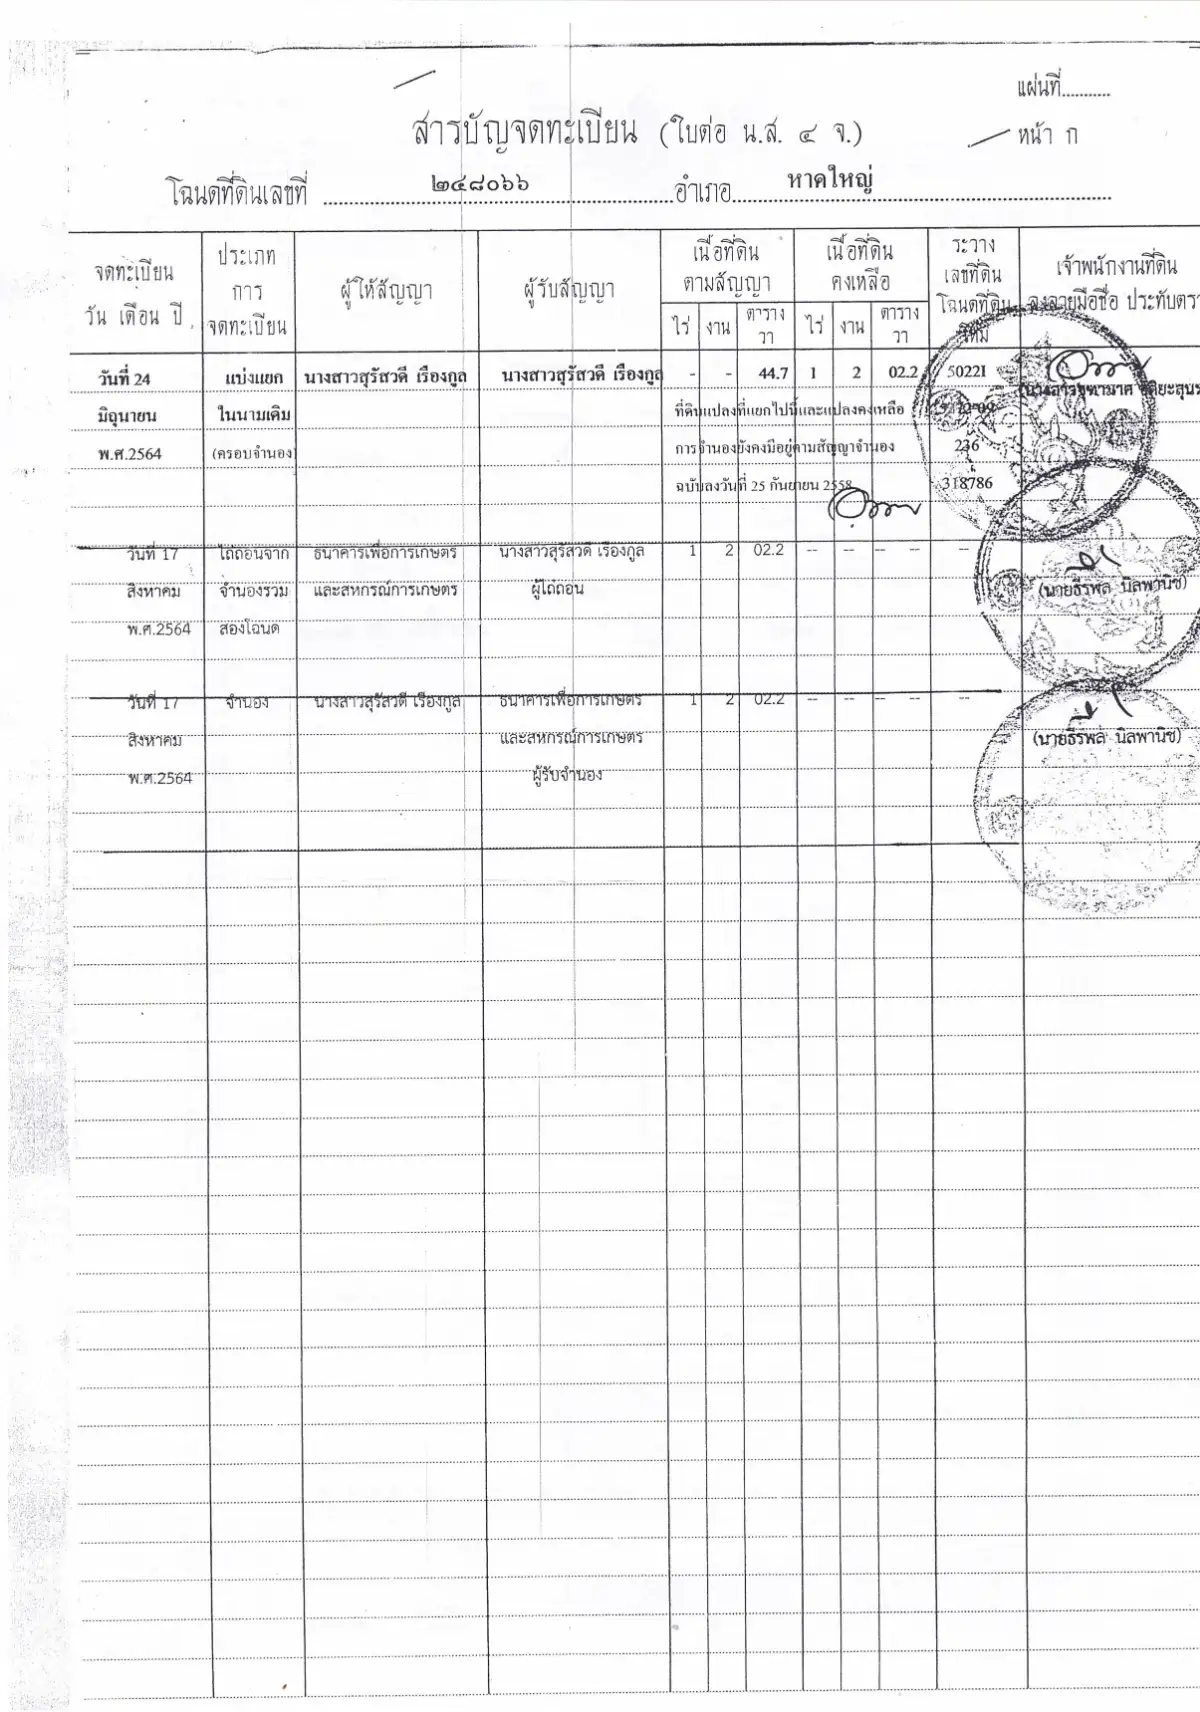 แผ่นที่...........
สารบัญจดทะเบียน (ใบต่อ น.ส. ๔ จ.)
หน้า ก
โฉนดที่ดินเลขที่ ๒๔๘๐๖๖ อำเภอ หาดใหญ่
จดทะเบียน วัน เดือน ปี
ประเภท การ จดทะเบียน
ผู้ให้สัญญา
ผู้รับสัญญา
เนื้อที่ดิน ตามสัญญา
ไร่ งาน ตาราง วา
เนื้อที่ดิน คงเหลือ
ไร่ งาน ตาราง วา
ระวาง เลขที่ดิน โฉนดที่ดิน ใหม่
เจ้าพนักงานที่ดิน ลงลายมือชื่อ ประทับตรา
วันที่ 24 แบ่งแยก นางสาวสุรัสวดี เรืองกูล นางสาวสุรัสวดี เรืองกูล - - 44.7 1 2 02.2 5022I
มิถุนายน ในนามเดิม ที่ดินแปลงที่แยกไปนี้และแปลงคงเหลือ
พ.ศ.2564 (ครอบจำนอง) การจำนองยังคงมีอยู่ตามสัญญาจำนอง 236
ฉบับลงวันที่ 25 กันยายน 2558 318786
วันที่ 17 ไถ่ถอนจาก ธนาคารเพื่อการเกษตร นางสาวสุรัสวดี เรืองกูล 1 2 02.2 -- -- -- -- --
สิงหาคม จำนองรวม และสหกรณ์การเกษตร ผู้ไถ่ถอน (นายธีรพล นิลพานิช)
พ.ศ.2564 สองโฉนด
วันที่ 17 จำนอง นางสาวสุรัสวดี เรืองกูล ธนาคารเพื่อการเกษตร 1 2 02.2 -- -- -- -- --
สิงหาคม และสหกรณ์การเกษตร (นายธีรพล นิลพานิช)
พ.ศ.2564 ผู้รับจำนอง